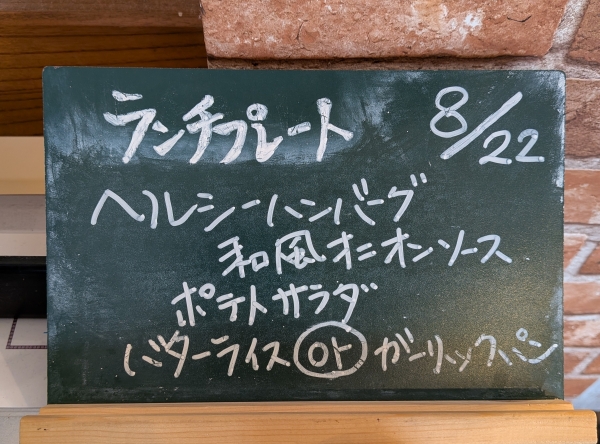 ランチプレート 8/22
ヘルシーハンバーグ
和風オニオンソース
ポテトサラダ
バターライス or ガーリックパン